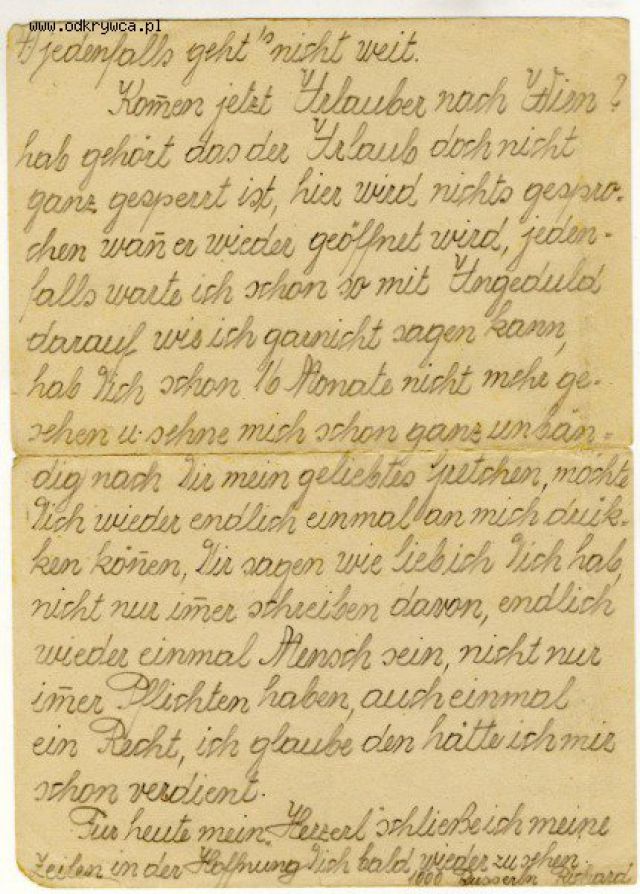 www.odkrywca.pl
jedenfalls geht's nicht weit.
Kom̄en jetzt Urlauber nach Wien?
hab gehört das der Urlaub doch nicht
ganz gesperrt ist, hier wird nichts gespro-
chen wan̄ er wieder geöffnet wird, jeden-
falls warte ich schon so mit Ungeduld
darauf wie ich garnicht sagen kann,
hab Dich schon 16 Monate nicht mehr ge-
sehen u. sehne mich schon ganz unbän-
dig nach Dir mein geliebtes Gretchen, möchte
Dich wieder endlich einmal an mich drük-
ken kön̄en, Dir sagen wie lieb ich Dich hab,
nicht nur im̄er schreiben davon, endlich
wieder einmal Mensch sein, nicht nur
im̄er Pflichten haben, auch einmal
ein Recht, ich glaube den hätte ich mir
schon verdient.
Für heute mein Herzerl schließe ich meine
Zeilen in der Hoffnung Dich bald wieder zu sehen.
1000 Busserln Richard